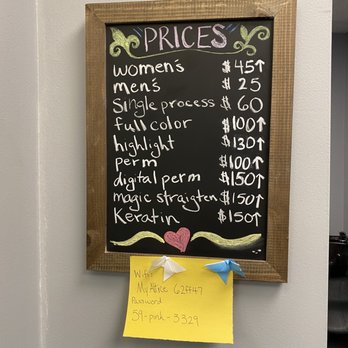 "PRICES"
women's $45↑
men's $25
Single process $60
full color $100↑
highlight $130↑
perm $100↑
digital perm $150↑
magic straigten $150↑
Keratin $150↑
Wifi
62ff47
Password
59-pink-3329